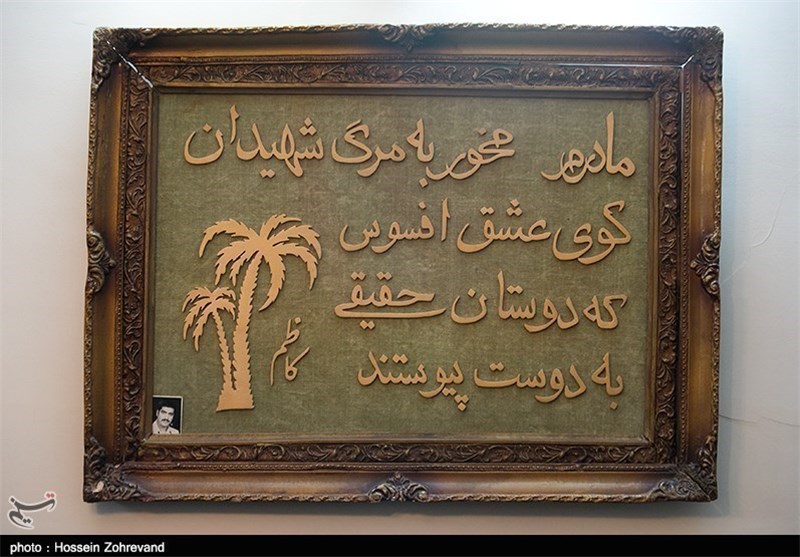 مادرم مخور به مرگ شهیدان
کوی عشق افسوس
که دوستان حقیقی
به دوست پیوستند
کاظم
تسنیم
photo : Hossein Zohrevand